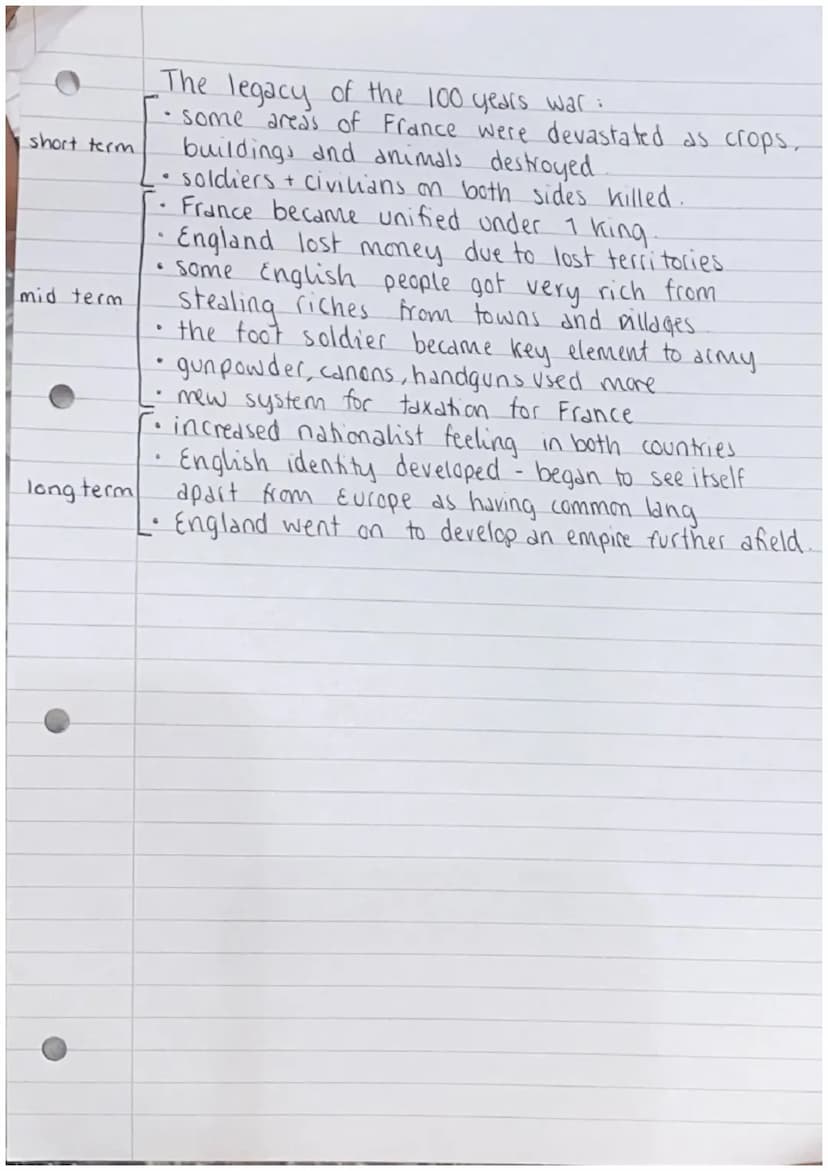 The legacy of the 100 years war :
short term
• some areas of France were devastated as crops,
buildings and animals destroyed.
• soldiers + civilians on both sides killed.
mid term
• France became unified under 1 king.
• England lost money due to lost territories
• some English people got very rich from
stealing riches from towns and villages
• the foot soldier became key element to army
• gunpowder, canons, handguns used more
• new system for taxation for France
long term
• increased nationalist feeling in both countries
• English identity developed - began to see itself
apart from Europe as having common lang
• England went on to develop an empire further afield.